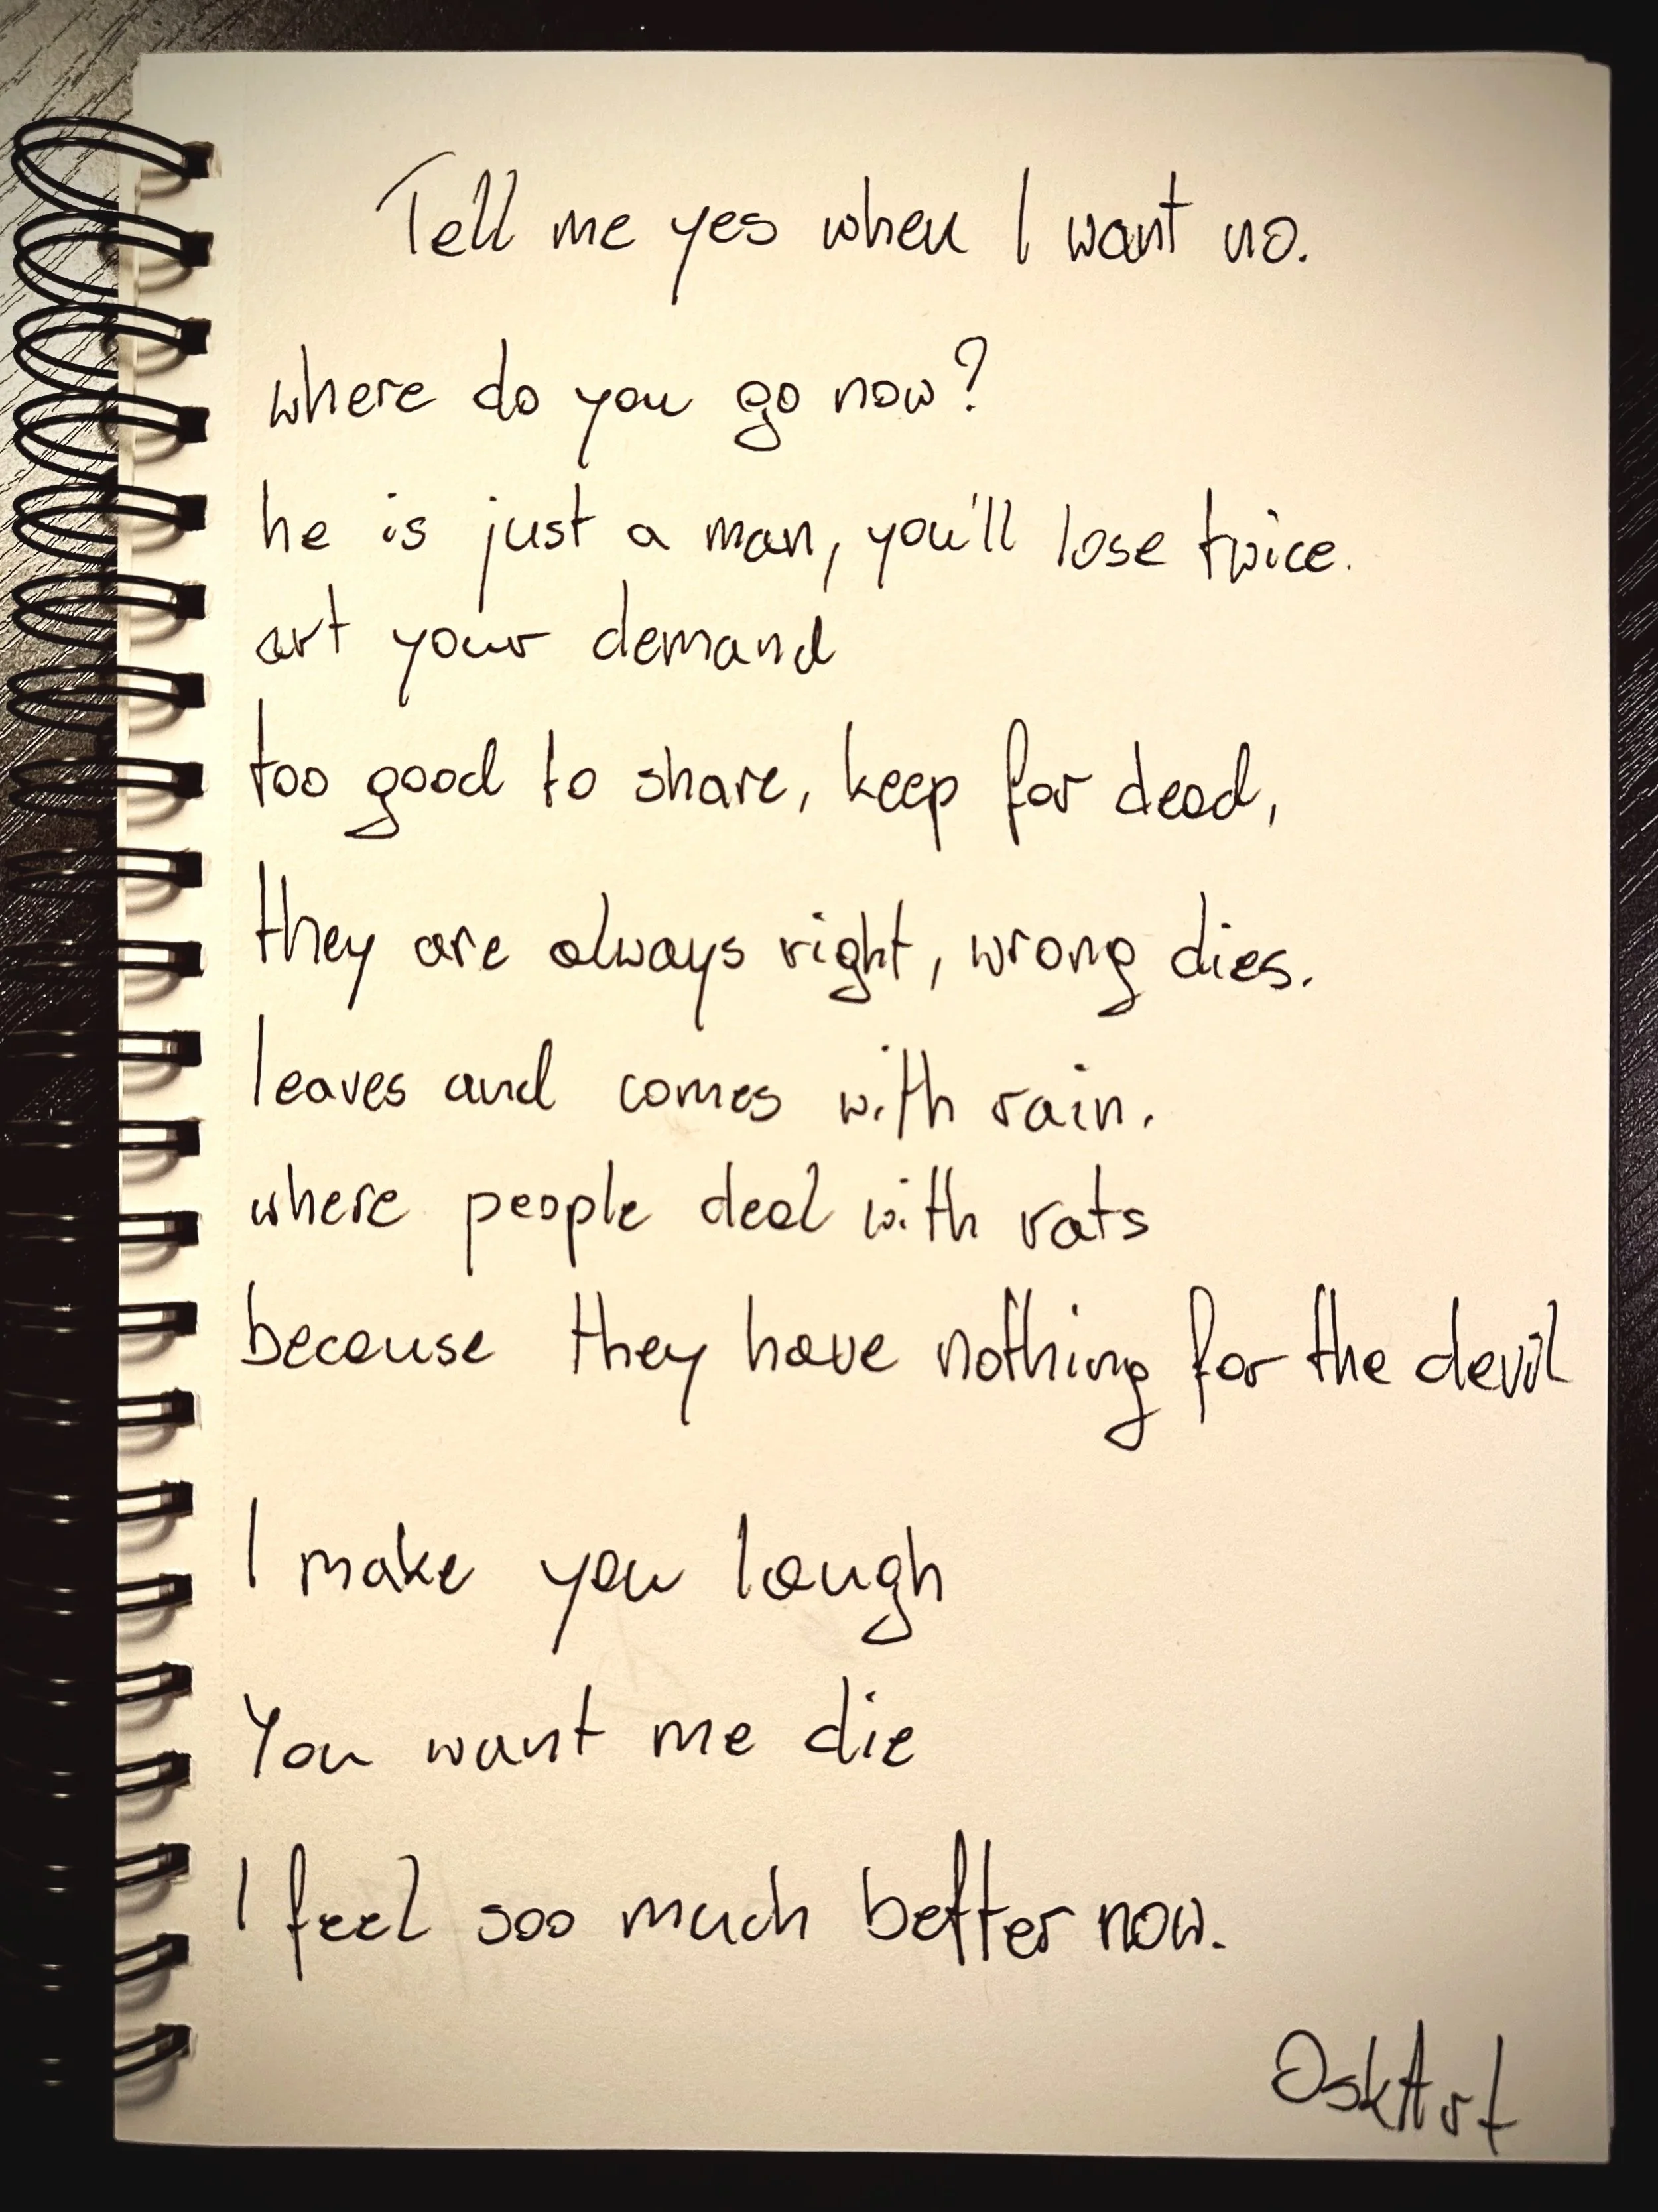 Tell me yes when I want no.
where do you go now?
he is just a man, you'll lose twice.
art your demand
too good to share, keep for dead,
they are always right, wrong dies.
leaves and comes with rain.
where people deal with rats
because they have nothing for the devil
I make you laugh
You want me die
I feel soo much better now.
OskArt